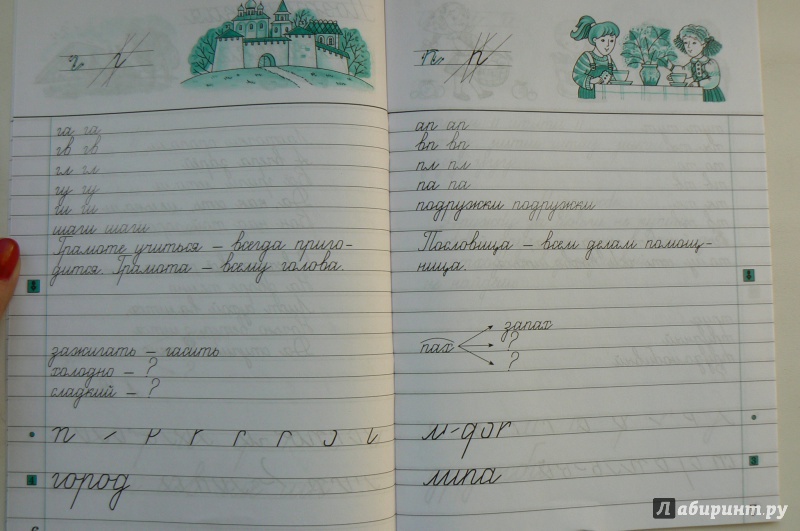 г г
га га
гв гв
гл гл
гу гу
ги ги
шаги шаги
Грамоте учиться – всегда приго-
дится. Грамота – всему голова.
зажигать – гасить
холодно – ?
сладкий – ?
город
п п
ап ап
вп вп
пл пл
па па
подружки подружки
Пословица – всем делам помощ-
ница.
запах
пах ?
?
липа
Лабиринт.ру